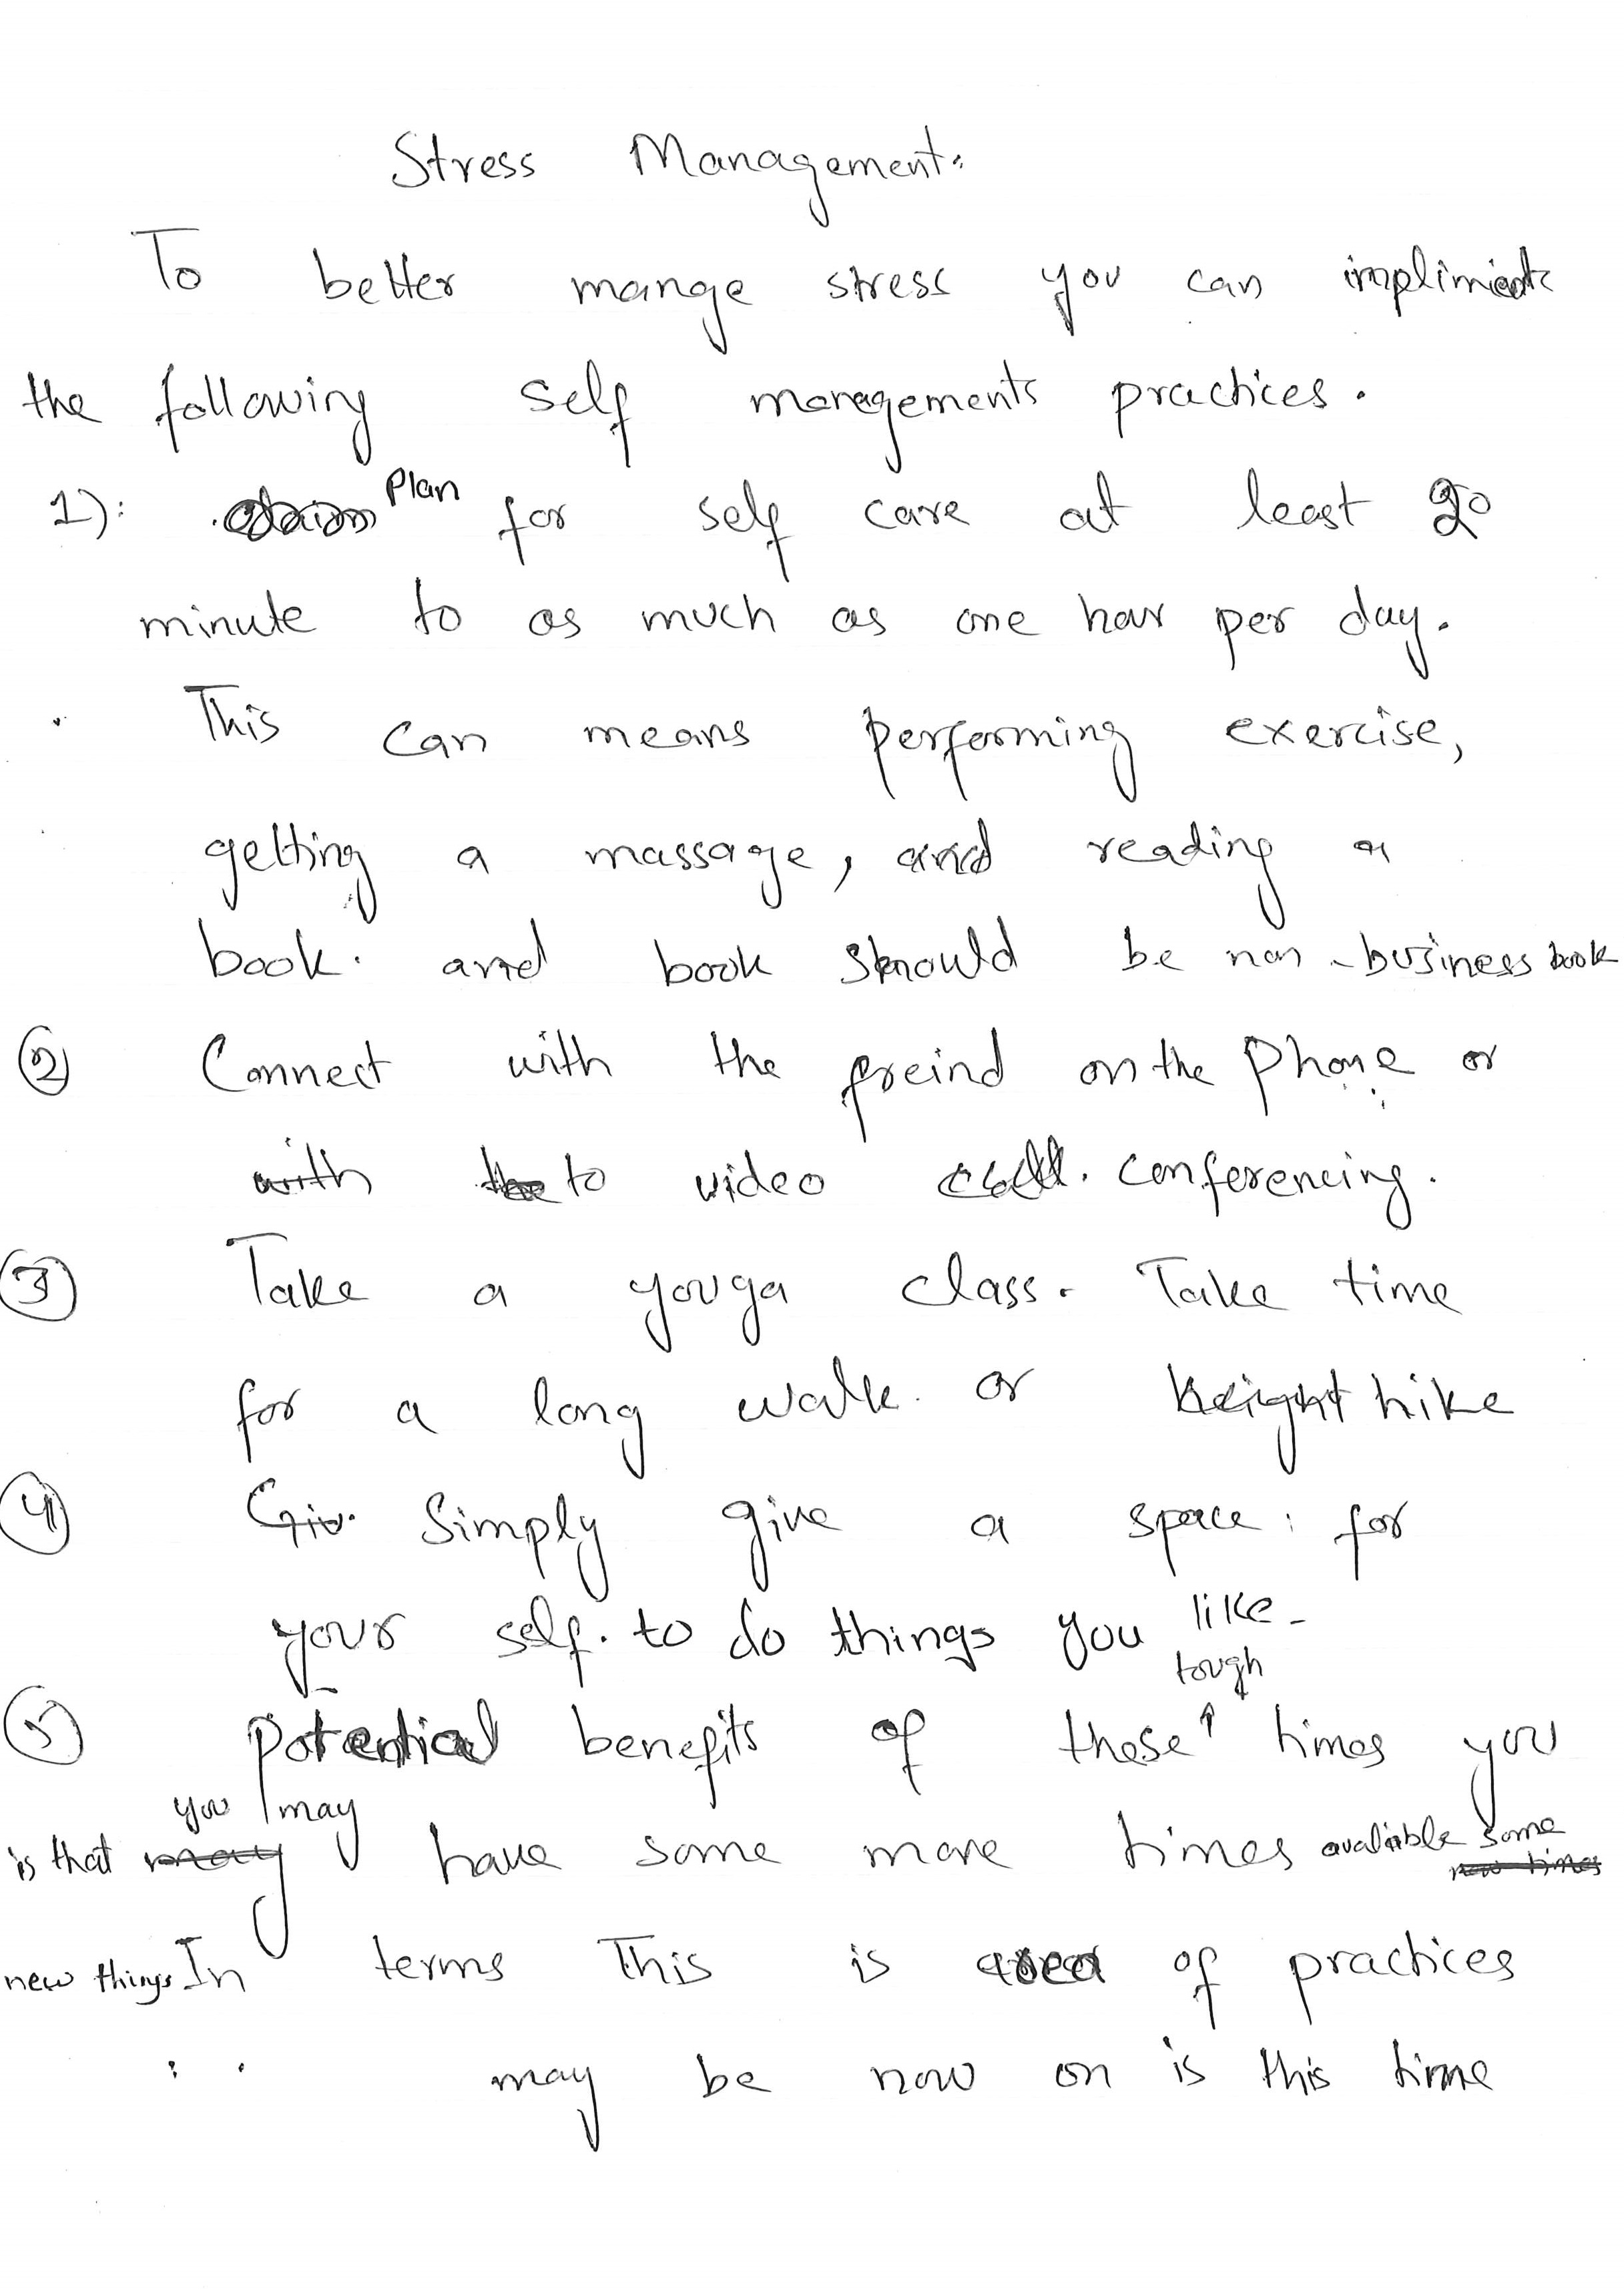 Stress Management:
To better mange stress you can impliment
the following self managements practices.
1): Plan for self care at least 20
minute to as much as one hour per day.
This can means performing exercise,
getting a massage, and reading a
book. and book should be non-business book
2 Connect with the freind on the phone or
to video conferencing.
3 Take a youga class. Take time
for a long walk. or hike
4 Simply give a space: for
your self. to do things you like-
tough
5 Potential benefits of these↑ times you
you may
is that have some more times avaliable some
new things In terms This is area of practices
may be now on is this time